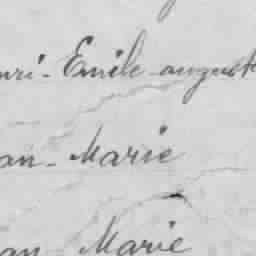 nri - Emile auguste
an - Marie
an Marie